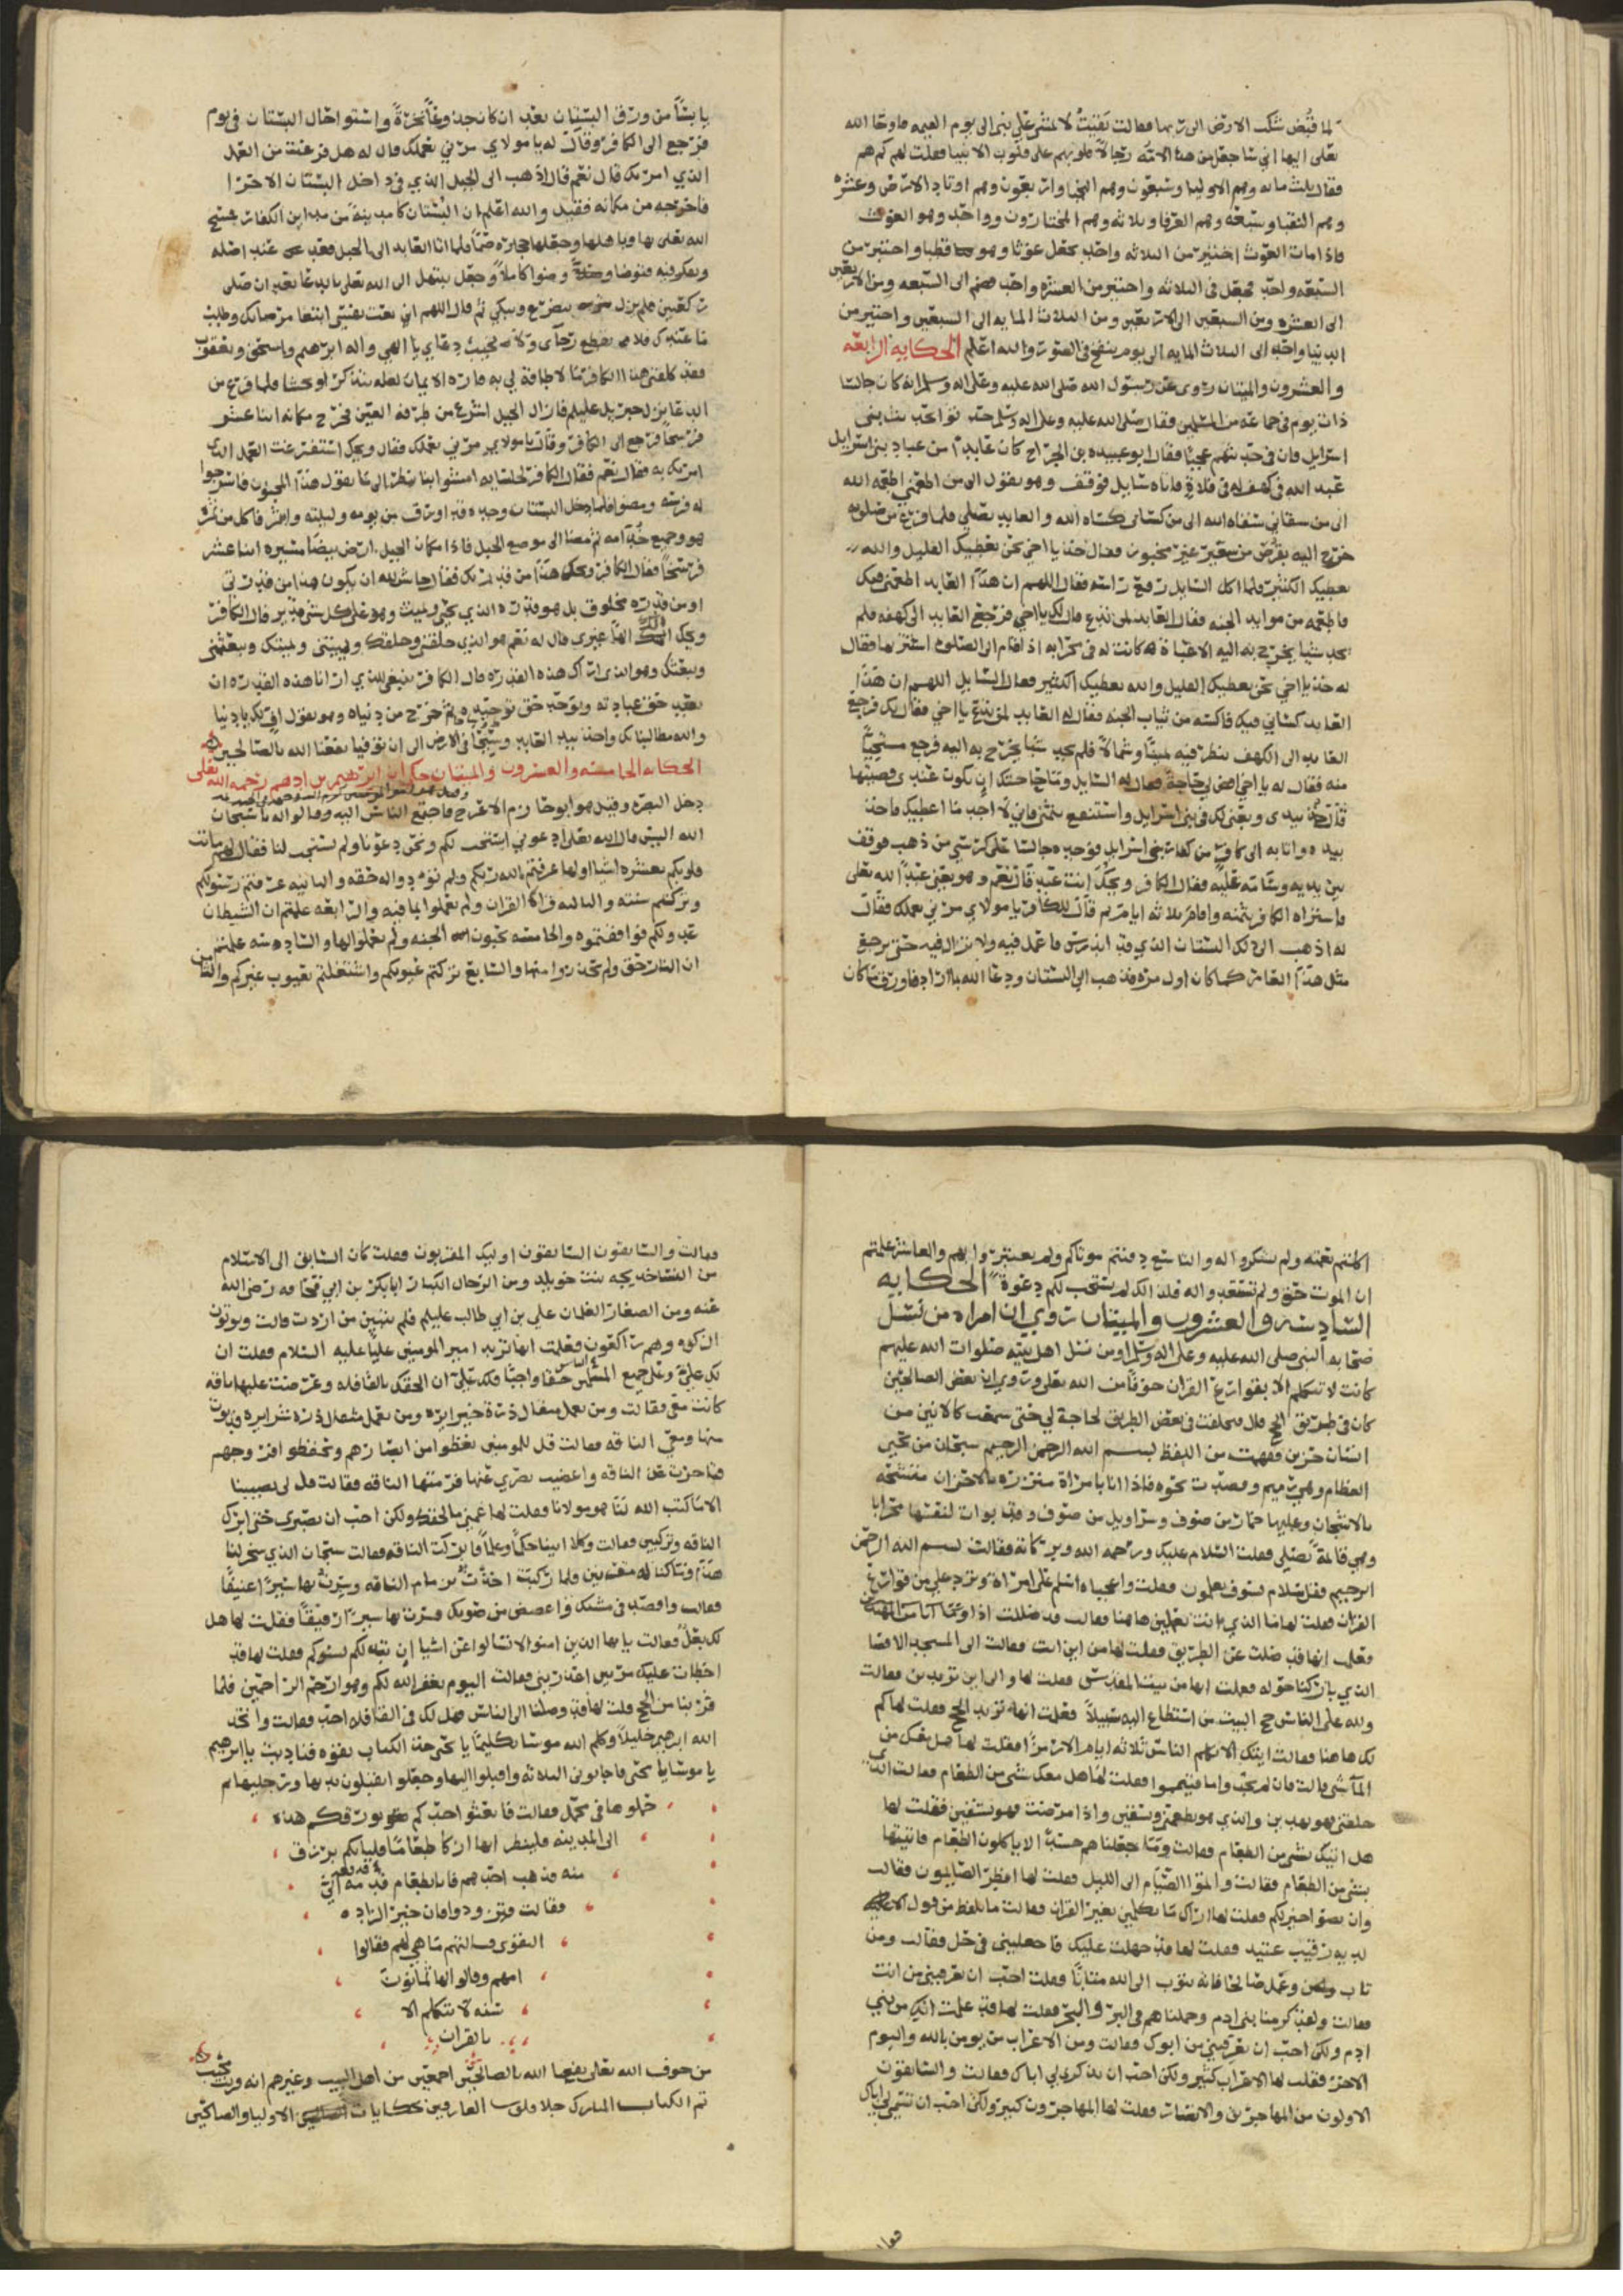 لما قبض شكت الارض الى ربها فقالت بقيت لا يمشي علي نبي الى يوم القيمه فاوحا الله
تعلى اليها اني سا جعل من هذه الامه رجالاً قلوبهم على قلوب الانبيا فقلت لهم كم هم
فقال ثلث مائه وهم الاوليا وسبعون وهم النجبا واربعون وهم اوتاد الارض وعشره
وهم النقبا وسبعه وهم العرفا وثلاثه وهم المختارون وواحد وهو الغوث
فاذا مات الغوث اختير من الثلاثه واحد يجعل غوثا وهو قطبا واختير من
السبعه واحد يجعل في الثلاثه واختير من العشره واحد ضم الى السبعه ومن الاربعين
الى العشره ومن السبعين الى الاربعين ومن الثلاث المايه الى السبعين واختير من
الدنيا واحد الى الثلاث المايه الى يوم ينفخ في الصور والله اعلم الحكايه الرابعه
والعشرون والميتان روي عن رسول الله صلى الله عليه وعلى اله وسلم انه كان جالسا
ذات يوم في جماعه من المسلمين فقال صلى الله عليه وعلى اله وسلم حدثوا عن بني
اسرايل فان في حديثهم عجباً فقال ابو عبيده بن الجراح كان عابداً من عباد بني اسرايل
عبد الله في كهف له في فلاةٍ فاتاه سايل فوقف وهو يقول الى من اطعمني اطعمه الله
الى من سقاني سقاه الله الى من كساني كساه الله والعابد يصلي فلما فرغ من صلوته
خرج اليه بقرص من شعير غير مخبون فقال خذ يا اخي نحن نعطيك القليل والله
يعطيك الكثير فلما اكل السايل رفع راسه فقال اللهم ان هذا العابد اطعمني فيك
فاطعمه من موايد الجنه فقال العابد لمن تدع قال لك يا اخي فرجع العابد الى كهفه فلم
يجد شيا يخرج به اليه الا عباة له كانت له في محرابه اذا قام الى الصلوة استتر بها فقال
له خذ يا اخي نحن نعطيك القليل والله يعطيك الكثير فقال السايل اللهم ان هذا
العابد كساني فيك فاكسه من ثياب الجنه فقال له العابد لمن تدع يا اخي فقال لك فرجع
العابد الى الكهف ينظر فيه يميناً وشمالاً فلم يجد شيا يخرج به اليه فرجع مستحياً
منه فقال له يا اخي اقض لي حاجةً فقال له السايل وما حاجتك ان تكون عندي فصيتها
قال خذ بيدي وبعني لك في بني اسرايل واستنفع بثمني فاني لا اجد ما اعطيك فاخذ
بيده واتا به الى كافر من كفار بني اسرايل فوجده جالسا على كرسي من ذهب فوقف
بين يديه وسلمه عليه فقال الكافر ويحك انت عبد قال نعم وهو يعني عبداً لله تعلى
فاشتراه الكافر بثمنه واقام ثلاثه ايام ثم قال للكافر يا مولاي مرني بعملك فقال
له اذهب الى ذلك البستان الذي قد اندرس فاعمل فيه ولا تزال فيه حتى يرجع
مثل هذا العامر كما كان اول مره فذهب الى البستان ودعا الله بما اراد فاورق ما كان
يابساً من ورق البستان بعد ان كان جذوعاً نخرةً واستوا حال البستان في يوم
فرجع الى الكافر وقال له يا مولاي مرني بعملك قال له هل فرغت من العمل
الذي امرتك قال نعم قال اذهب الى الجبل الذي في داخل البستان الاخر ا
فاخرجه من مكانه فقيل والله اعلم ان البستان كا مدينة من مداين الكفار مسخ
الله تعلى بها وباهلها وجعلها حجاره صماً فلما اتا العابد الى الجبل قعد عند اصله
وتفكر فيه فتوضا وضوا كاملاً وجعل يبتهل الى الله تعلى بالدعا بعد ان صلى
ركعتين فلم يزل يتضرع ويبكي ثم قال اللهم اني بعت نفسي ابتغا مرضاتك وطلب
ما عندك فلا تقطع رجاى ولا تخيب دعاي يا الهي واله ابرهيم واسحق ويعقوب
فقد كلفني هذا الكافر ما لا طاقة لي به فاره الايمان لعله يتذكر او يخشا فلما فرغ من
الدعا نزل جبريل عليلم فازال الجبل اسرع من طرفه العين فخرج مكانه اثنا عشر
فرسخاً فرجع الى الكافر وقال يا مولاي مرني بعملك فقال ويحك استفرغت العمل الذي
امرتك به فقال نعم فقال الكافر لجلسايه امشوا بنا ننظر الى ما يقول هذا المجنون فاسرجوا
له فرسه ومضوا فلما دخل البستان وجده قد اورق من يومه وليلته واثمر فاكل من ثمره
هو وجميع خدامه ثم مضا الى موضع الجبل فاذا مكان الجبل ارض بيضا مسيره اثنا عشر
فرسخاً فقال الكافر ويحك هذا من قدرتك فقال حاش لله ان يكون هذا من قدرتي
او من قدره مخلوق بل هو قدره الذي يحيي ويميت وهو على كل شي قدير قال الكافر
ويحك الك الهاً غيري قال له نعم هو الذي خلقني وخلقك ويميتني ويميتك ويبعثني
ويبعثك وهو الذي اراك هذه القدره قال الكافر ينبغي للذي ارانا هذه القدره ان
يعبد حق عبادته ويوحد حق توحيده ثم خرج من دنياه وهو يقول اف لك يا دنيا
والله مطالبنا بك واخذ بيد العابد وسيحا في الارض الى ان توفيا نفعنا الله بالصالحين
الحكايه الخامسه والعشرون والميتان حكي ان ابرهيم بن ادهم رحمه الله تعلى
دخل البصره وقيل هو ابو حازم الاعرج فاجتمع الناس اليه وقالوا له يا شيخنا
الله اليس قال الله تعلى ادعوني استجب لكم ونحن دعونا ولم يستجب لنا فقال لهم ماتت
قلوبكم بعشره اشيا اولها عرفتم الله ربكم ولم تودوا له حقه والثانيه عرفتم رسولكم
وتركتم سنته والثالثه قراتم القران ولم تعملوا بما فيه والرابعه علمتم ان الشيطان
عدولكم فوافقتموه والخامسه تحبون الجنه ولم تعملوا لها والسادسه علمتم
ان النار حق ولم تحذروا منها والسابع تركتم عيوبكم واشتغلتم بعيوب غيركم والثامن
اكلتم نعمته ولم تشكروا له والتاسع دفنتم موتاكم ولم تعتبروا بهم والعاشر علمتم
ان الموت حق ولم تستعدوا له فلذلك لم يستجب لكم دعوة الحكايه
السادسه والعشرون والميتان روي ان امراه من نسل
صحابه النبي صلى الله عليه وعلى اله وسلم او من نسل اهل بيته صلوات الله عليهم
كانت لا تتكلم الا بقوارع القران خوفاً من الله تعلى وروي ان بعض الصالحين
كان في طريق الحج قال تخلفت في بعض الطريق لحاجة لي حتى سمعت كلا نين من
انسان حزين ففهمت من اللفظ بسم الله الرحمن الرحيم سبحان من يحيي
العظام وهي رميم وقصدت نحوه فاذا انا بامراة متزره بالاحزان متشحه
بالاشجان وعليها خمار من صوف وسراويل من صوف وقد بوات لنفسها محرابا
وهي قائمة تصلي فقلت السلام عليك ورحمه الله وبركاته فقالت بسم الله الرحمن
الرحيم فقل سلام فسوف يعلمون فقلت واعجباه اسلم على امراة وترد علي من قوارع
القران فقلت لها ما الذي انت تعملين هاهنا فقالت قد ضللت اذا وما انا من المهتدين
فعلمت انها قد ضلت عن الطريق فقلت لها من اين انت فقالت الى المسجد الاقصا
الذي باركنا حوله فعلمت انها من بيت المقدس فقلت لها والى اين تريدين فقالت
ولله على الناس حج البيت من استطاع اليه سبيلاً فعلمت انها تريد الحج فقلت لها كم
لك هاهنا فقالت ايتك الا تكلم الناس ثلاثه ايام الا رمزاً فقلت لها هل معك من
المآ شي قالت فان لم تجدوا ما فتيمموا فقلت لها هل معك شي من الطعام فقالت الذي
خلقني فهو يهدين والذي هو يطعمني ويسقين واذا مرضت فهو يشفين فقلت لها
هل اتيك بشي من الطعام فقالت وما جعلناهم جسداً لا ياكلون الطعام فاتيتها
بشي من الطعام فقالت واتموا الصيام الى الليل فقلت لها افطر الصايمون فقالت
وان تصوموا خير لكم فقلت لها اراك ما تكلمين بغير القران فقالت ما يلفظ من قول الا
لديه رقيب عتيد فقلت لها قد جهلت عليك فاجعليني في حل فقالت ومن
تاب وعمل صالحا فانه يتوب الى الله متابًا فقلت احب ان تعرفيني من انت
فقالت ولقد كرمنا بني ادم وحملناهم في البر والبحر فقلت لها قد علمت انك من بني
ادم ولكن احب ان تعرفيني من ابوك فقالت ومن الاعراب من يومن بالله واليوم
الاخر فقلت لها الاعراب كثير ولكن احب ان تذكري لي اباك فقالت والسابقون
الاولون من المهاجرين والانصار فقلت لها المهاجرون كثير ولكن احب ان تنتمي لي اباك
فقالت والسابقون السابقون اوليك المقربون فقلت كان السابق الى الاسلام
من النسا خديجه بنت خويلد ومن الرجال الكبار ابا بكر بن ابي قحافه رضي الله
عنه ومن الصغار الغلمان علي بن ابي طالب عليلم فلم تبنين من اردت قالت ويوتون
الزكوه وهم راكعون فعلمت انها تريد امير المومنين علياً عليه السلام فقلت ان
لك علي وعلى جميع المسلمين حقا واجبًا فلك علي ان الحقك بالقافله وعرضت عليها ناقه
كانت معي فقالت ومن يعمل مثقال ذرة خيرا يره ومن يعمل مثقال ذره شرا يره فدنوت
منها ومعي الناقه فقالت قل للمومنين يغضوا من ابصارهم ويحفظوا فروجهم
فتاخرت عن الناقه واغضيت بصري عنها فرمتها الناقه فقالت قل لن يصيبنا
الا ما كتب الله لنا هو مولانا فقلت لها عني بالحقك ولكن احب ان تصبري حتى ابرك
الناقه وتركبين فقالت وكلا اتينا حكماً وعلماً فابركت الناقه فقالت سبحان الذي سخر لنا
هذا وما كنا له مقرنين فلما ركبت اخذت بزمام الناقه وسرت بها سيراً عنيفًا
فقالت واقصد في مشيك واغضض من صوتك فسرت بها سيراً رفيقاً فقلت لها هل
لك بعل فقالت يا ايها الذين امنوا لا تسالوا عن اشيا ان تبد لكم تسوكم فقلت لها قد
اخطات عليك مرتين اعذريني فقالت اليوم يغفر الله لكم وهو ارحم الراحمين فلما
قربنا من الحج قلت لها قد وصلنا الى الناس فهل لك في القافله احد فقالت واتخذ
الله ابرهيم خليلاً وكلم الله موسا تكليماً يا يحيى خذ الكتاب بقوه فناديت يا ابرهيم
يا موسا يا يحيى فاجابوني الثلاثه واقبلوا اليها وجعلوا يقبلون يديها ورجليها ثم
حملوها في محمل فقالت فابعثوا احدكم بورقكم هذه
الى المدينه فلينظر ايها ازكا طعامًا فلياتكم برزق
منه فذهب احدهم فاتا بطعام قدمه الي
فقالت وتزودوا فان خير الزاد ه
التقوى فسالتهم ما هي لهم فقالوا
امهم وقالوا لها ثمانون
سنه لا تتكلم الا
بالقران
من خوف الله تعالى نفعنا الله بالصالحين اجمعين من اهل البيت وغيرهم انه قريب مجيب
تم الكتاب المبارك جلا قلوب العارفين بحكايات الاوليا والصالحين
فقالت